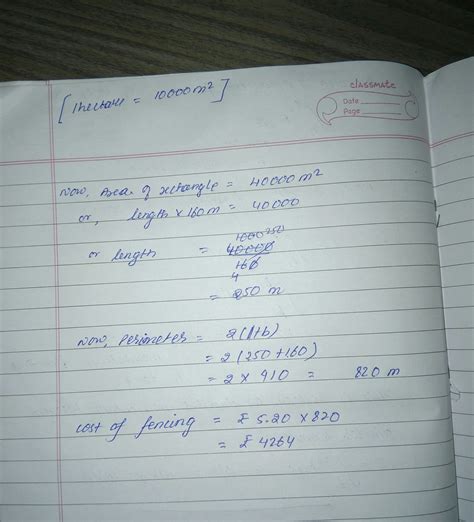 classmate
Date
Page
[1hectare = 10000m²]
Now, Area of rectangle = 40000m²
or, length × 160m = 40000
1000 250
or length = 40000
160
4
= 250 m
Now, perimeter = 2(l+b)
= 2(250+160)
= 2 × 410 = 820 m
cost of fencing = ₹ 5.20 × 820
= ₹ 4264